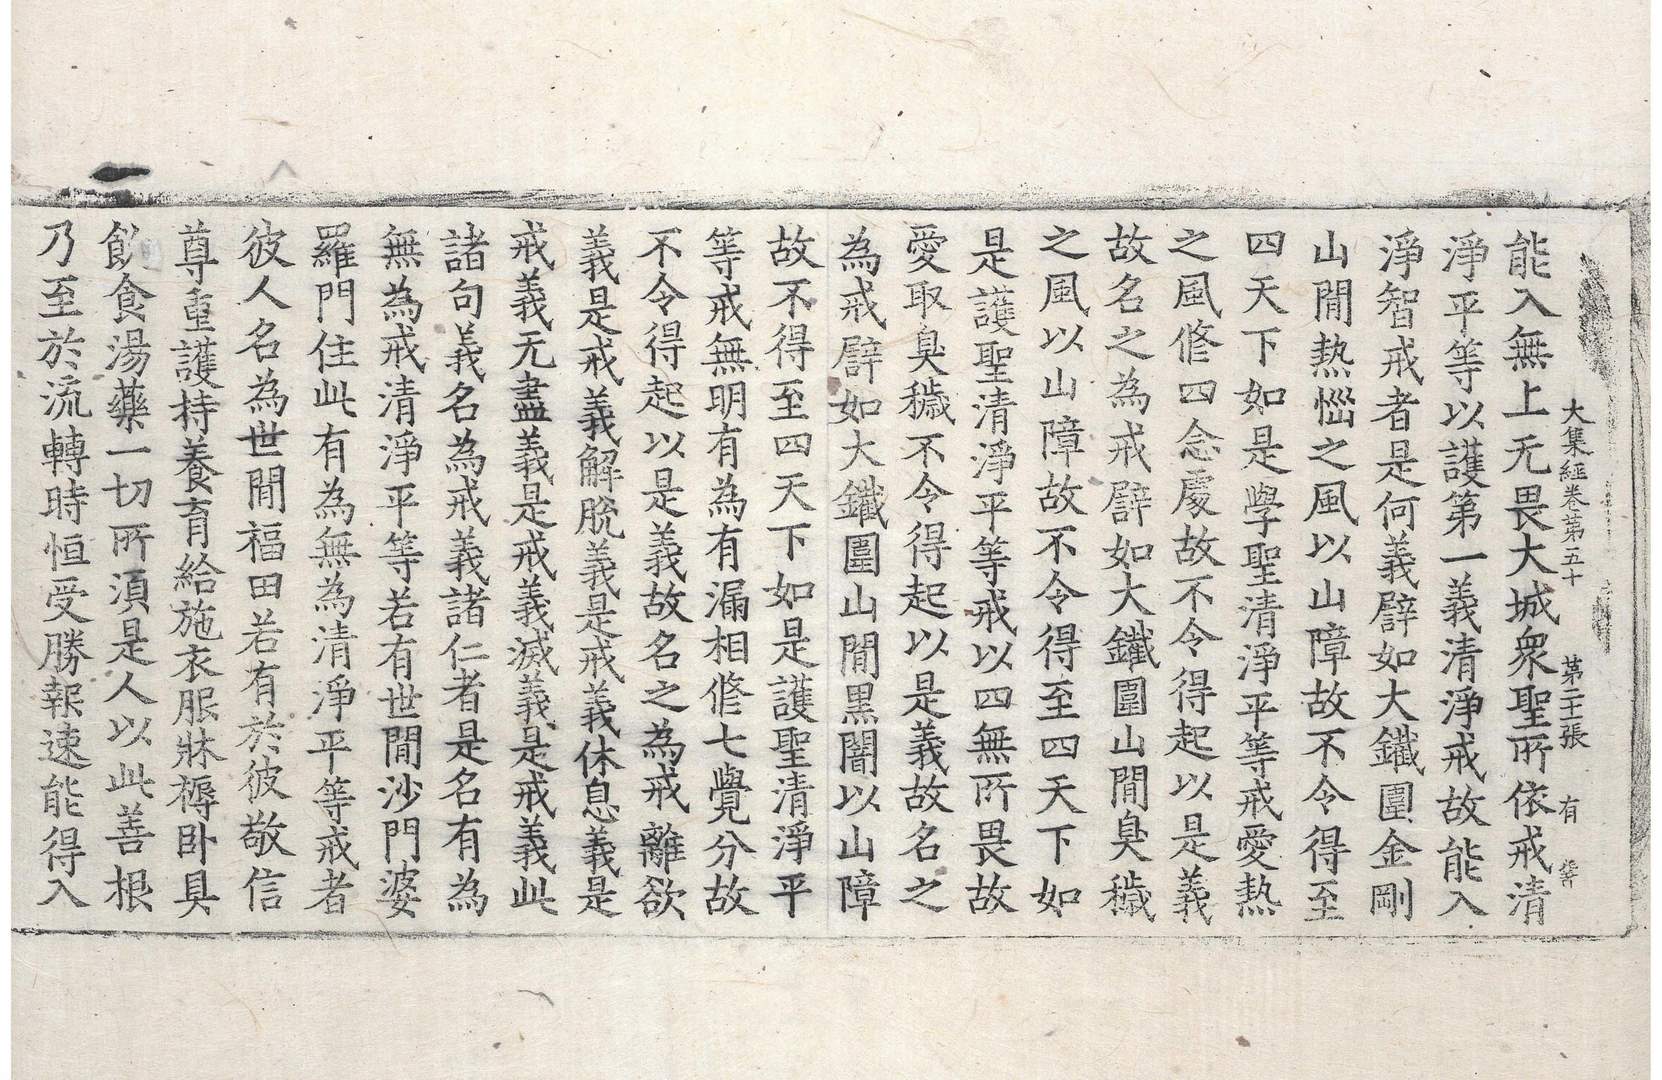 大集經卷第五十 第二十張 有
能入無上无畏大城衆聖所依戒清
淨平等以護第一義清淨戒故能入
淨智戒者是何義譬如大鐵圍金剛
山間熱惱之風以山障故不令得至
四天下如是學聖清淨平等戒愛熱
之風修四念處故不令得起以是義
故名之為戒譬如大鐵圍山間臭穢
之風以山障故不令得至四天下如
是護聖清淨平等戒以四無所畏故
愛取臭穢不令得起以是義故名之
為戒譬如大鐵圍山間黒闇以山障
故不得至四天下如是護聖清淨平
等戒無明有為有漏相修七覺分故
不令得起以是義故名之為戒離欲
義是戒義解脫義是戒義休息義是
戒義无盡義是戒義滅義是戒義此
諸句義名為戒義諸仁者是名有為
無為戒清淨平等若有世間沙門婆
羅門住此有為無為清淨平等戒者
彼人名為世間福田若有於彼敬信
尊重護持養育給施衣服牀褥卧具
飲食湯藥一切所湏是人以此善根
乃至於流轉時恒受勝報速能得入